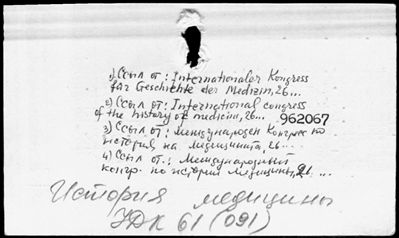 1) Ссыл от: Internationaler Kongress
für Geschichte der Medizin, 26...
2) Ссыл от: International congress
of the history of medicine, 26...
962067
3) Ссыл от: международен Конгрес по
история на медицината, 26...
4) Ссыл от.: Международный
конгр. по истории медицины, 21...
История медицины
УДК 61 (091)